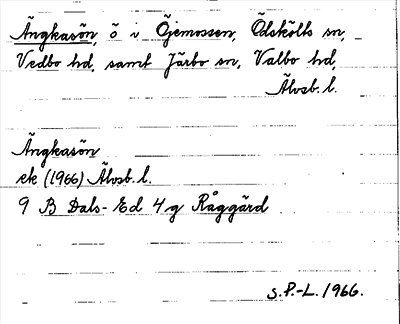 Ängkasön, ö i Öjemossen, Ödskölts sn,
Vedbo hd, samt Järbo sn, Valbo hd,
Älvsb. l.
Ängkasön
ek (1966) Älvsb. l.
9 B Dals-Ed 4 g Råggärd
S.P.-L. 1966.